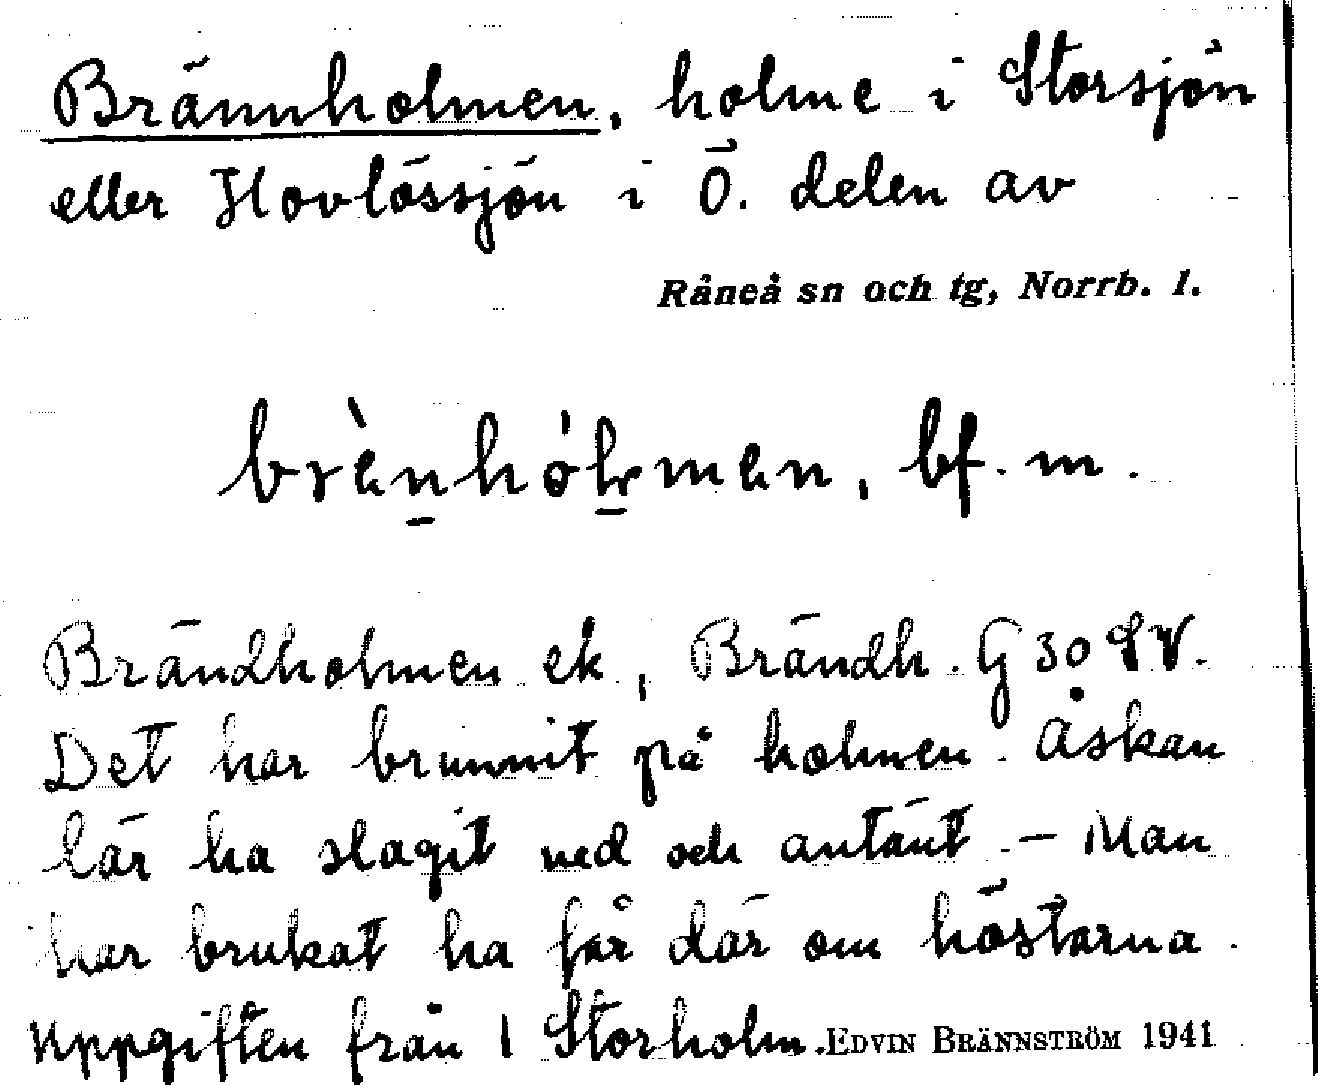 Brännholmen, holme i Storsjön
eller Hovlössjön i Ö. delen av
Råneå sn och tg, Norrb. l.
brènhólmen, bf. m.
Brändholmen ek, Brändh. G 30 SV.
Det har brunnit på holmen. Åskan
lär ha slagit ned och antänt. – Man
har brukat ha får där om höstarna.
Uppgiften från 1 Storholm. EDVIN BRÄNNSTRÖM 1941